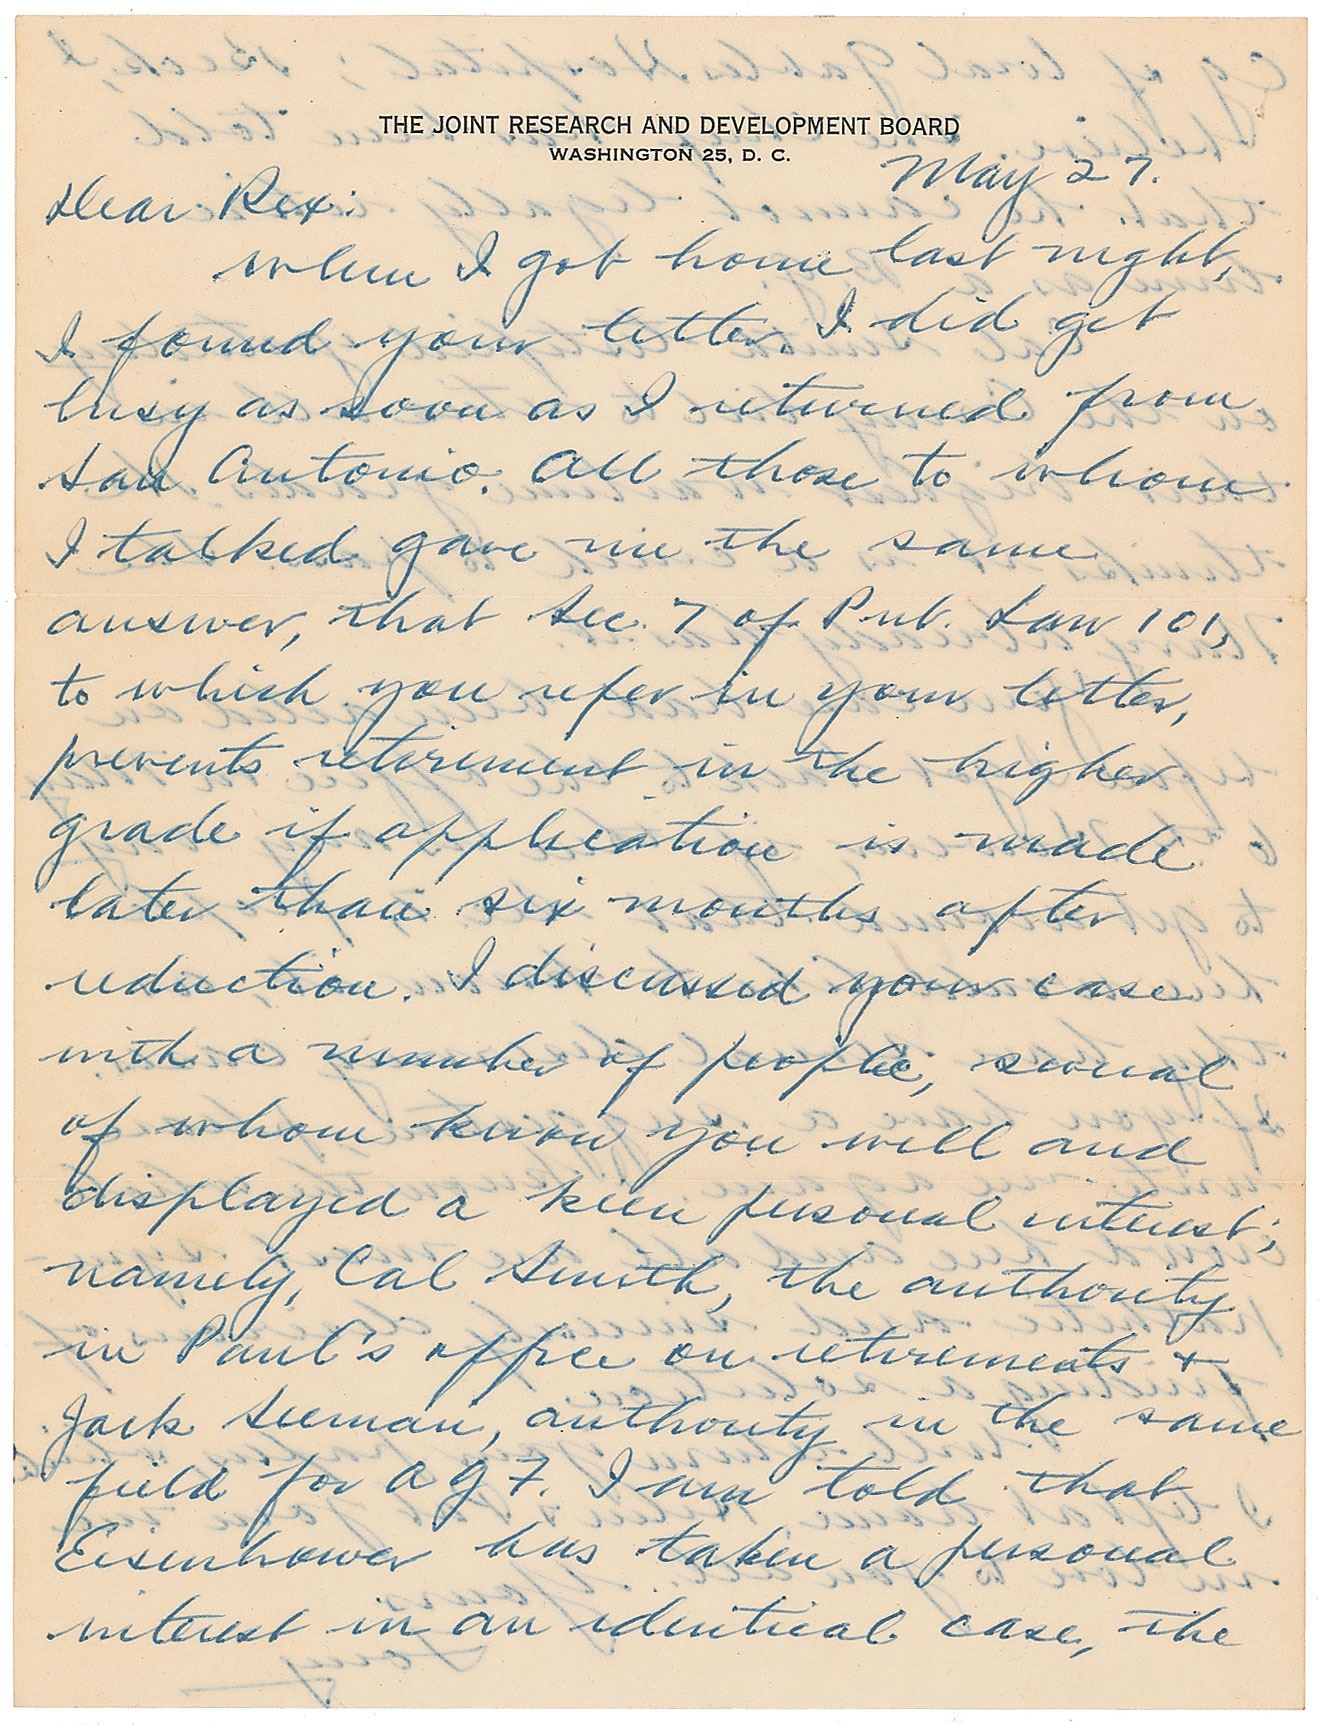 THE JOINT RESEARCH AND DEVELOPMENT BOARD
WASHINGTON 25, D. C.
May 27.
Dear Rex:
When I got home last night,
I found your letter. I did get
busy as soon as I returned from
San Antonio. All those to whom
I talked gave me the same
answer, that Sec. 7 of Pub. Law 101,
to which you refer in your letter,
prevents retirement in the higher
grade if application is made
later than six months after
reduction. I discussed your case
with a number of people, several
of whom know you well and
displayed a keen personal interest;
namely, Cal Smith, the authority
in Paul's office on retirements +
Jack Seeman, authority in the same
field for AGF. I am told that
Eisenhower has taken a personal
interest in an identical case, the